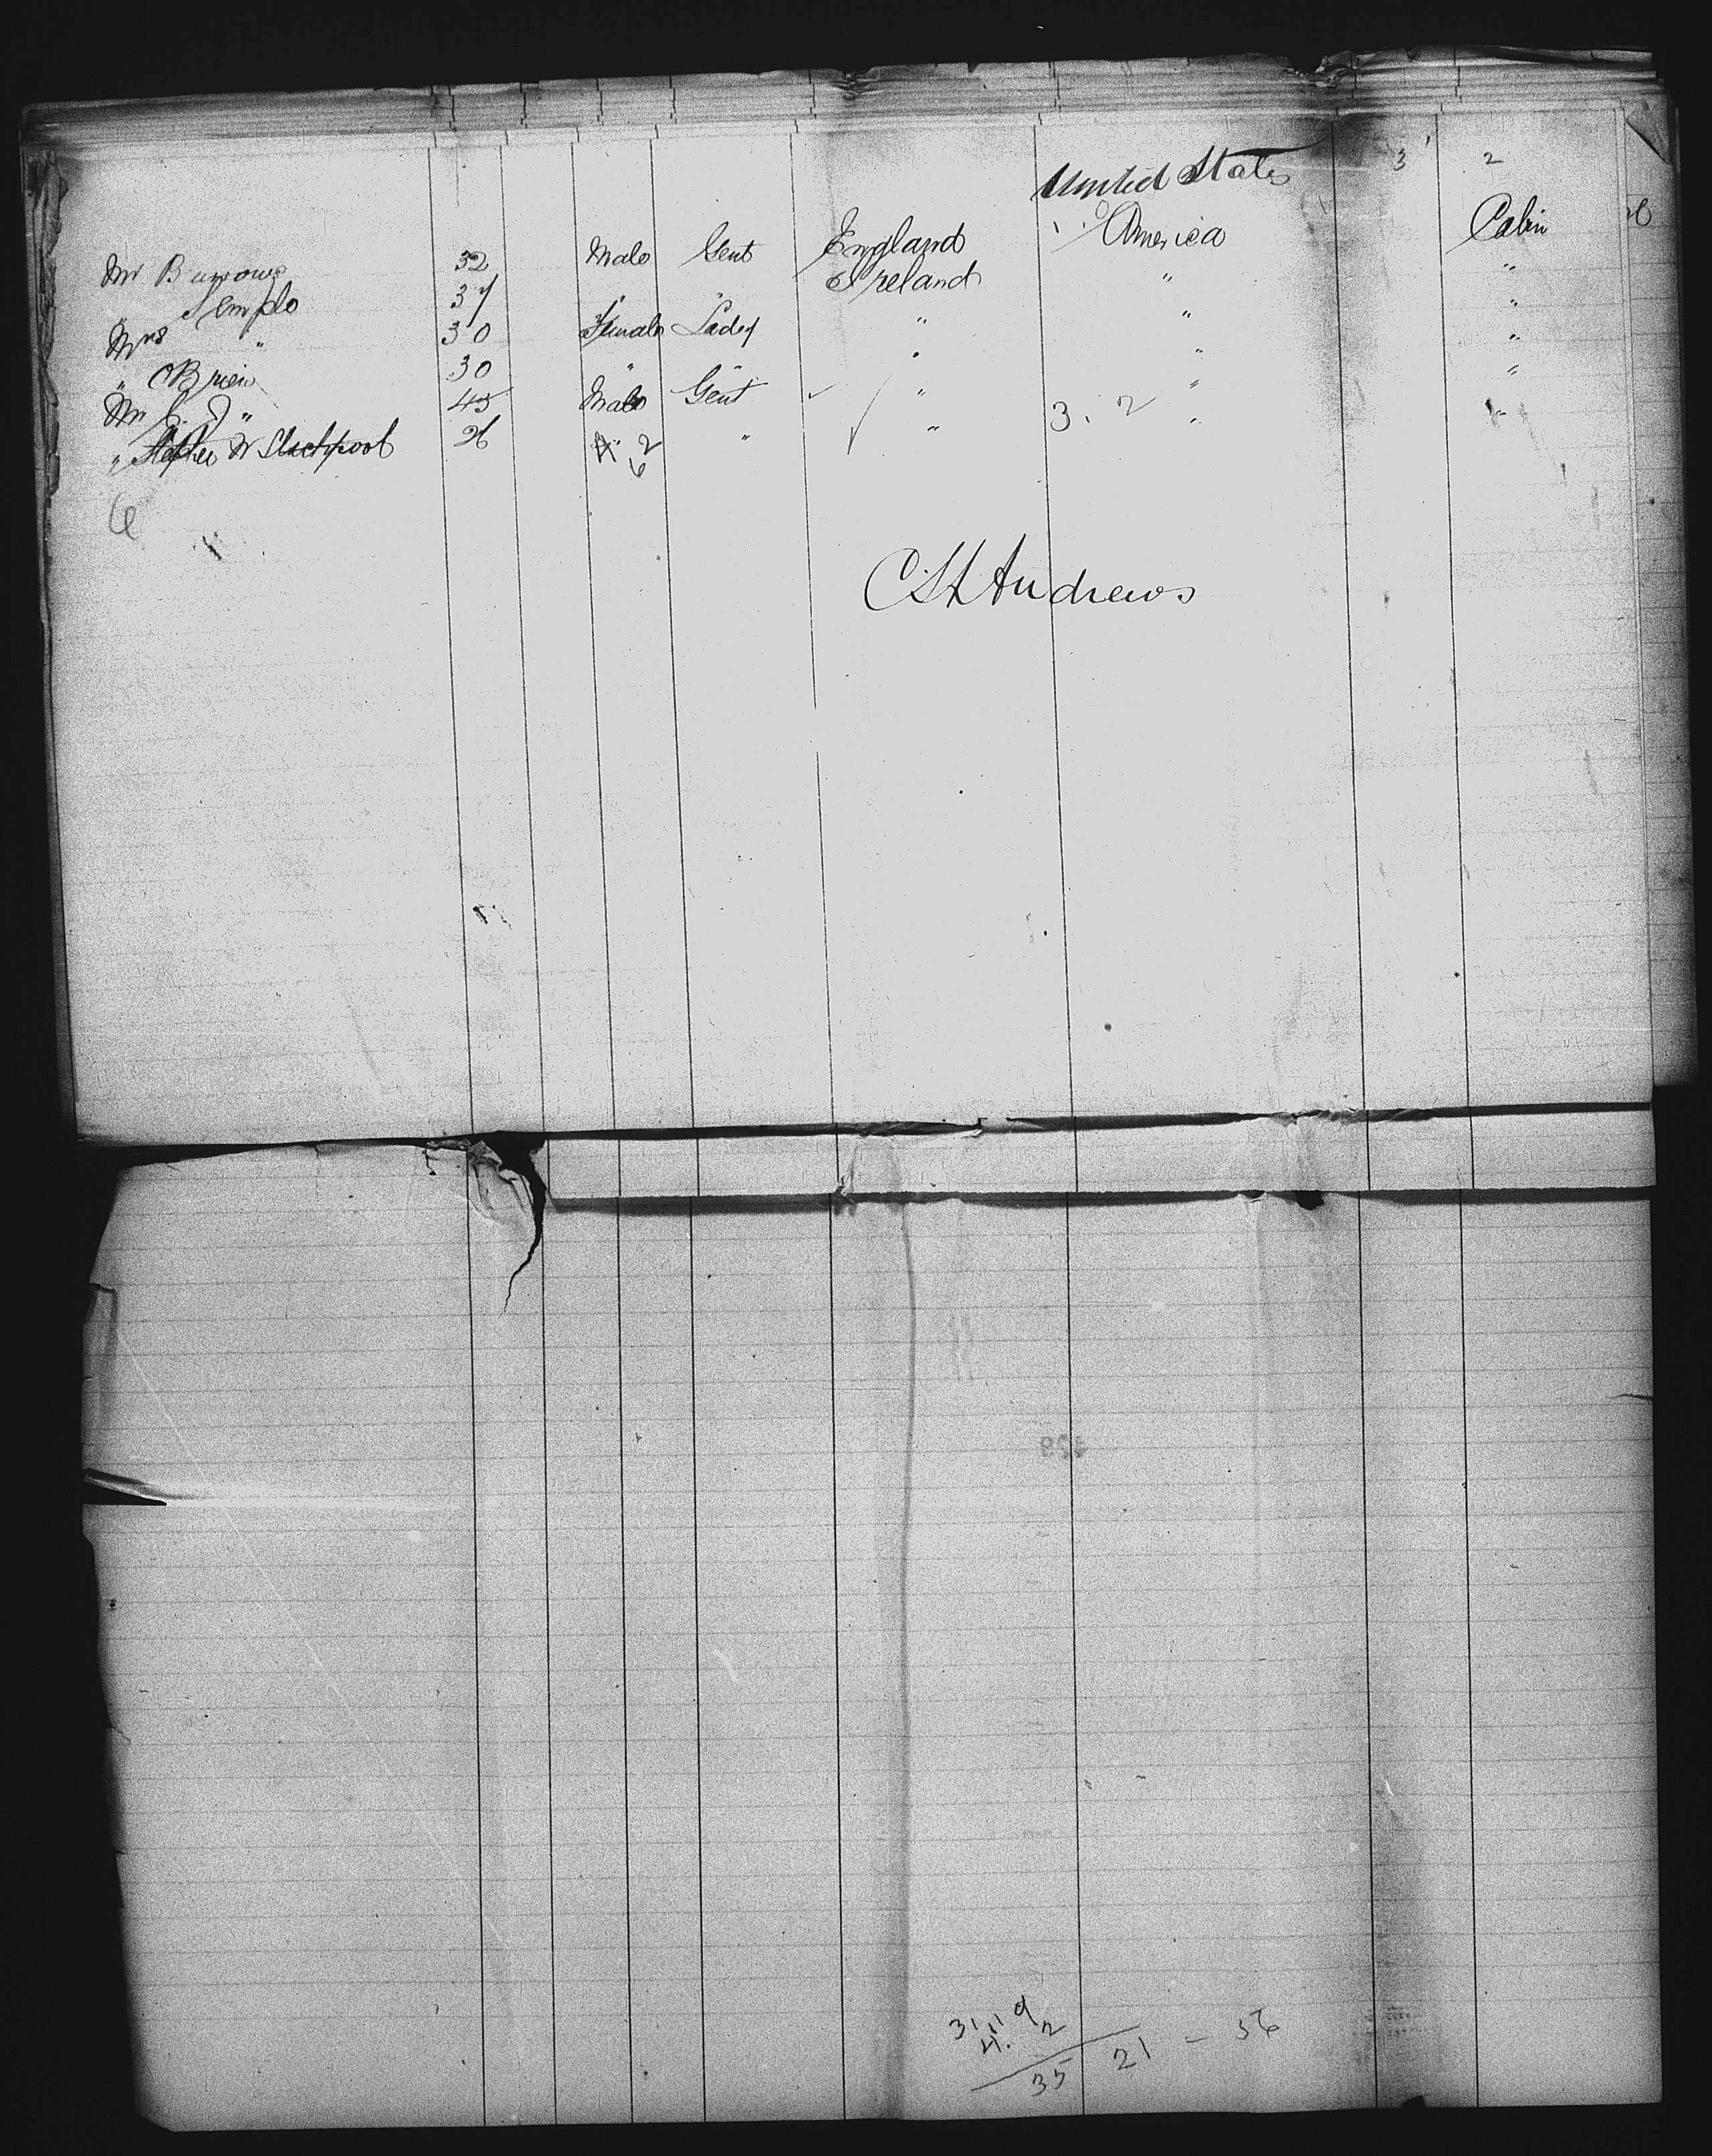 United States 3 2
Mr Burrows 32 Male Gent England America Cabin
" Templo 37 " " Ireland " "
Mrs " 30 Female Lady " " "
" OBrien 30 " " " " "
Mr " 45 Male Gent " " "
" 26 " " " " "
2
6
3 . 2
6
C St Andrews
31 19
4. 2
35 21 – 56